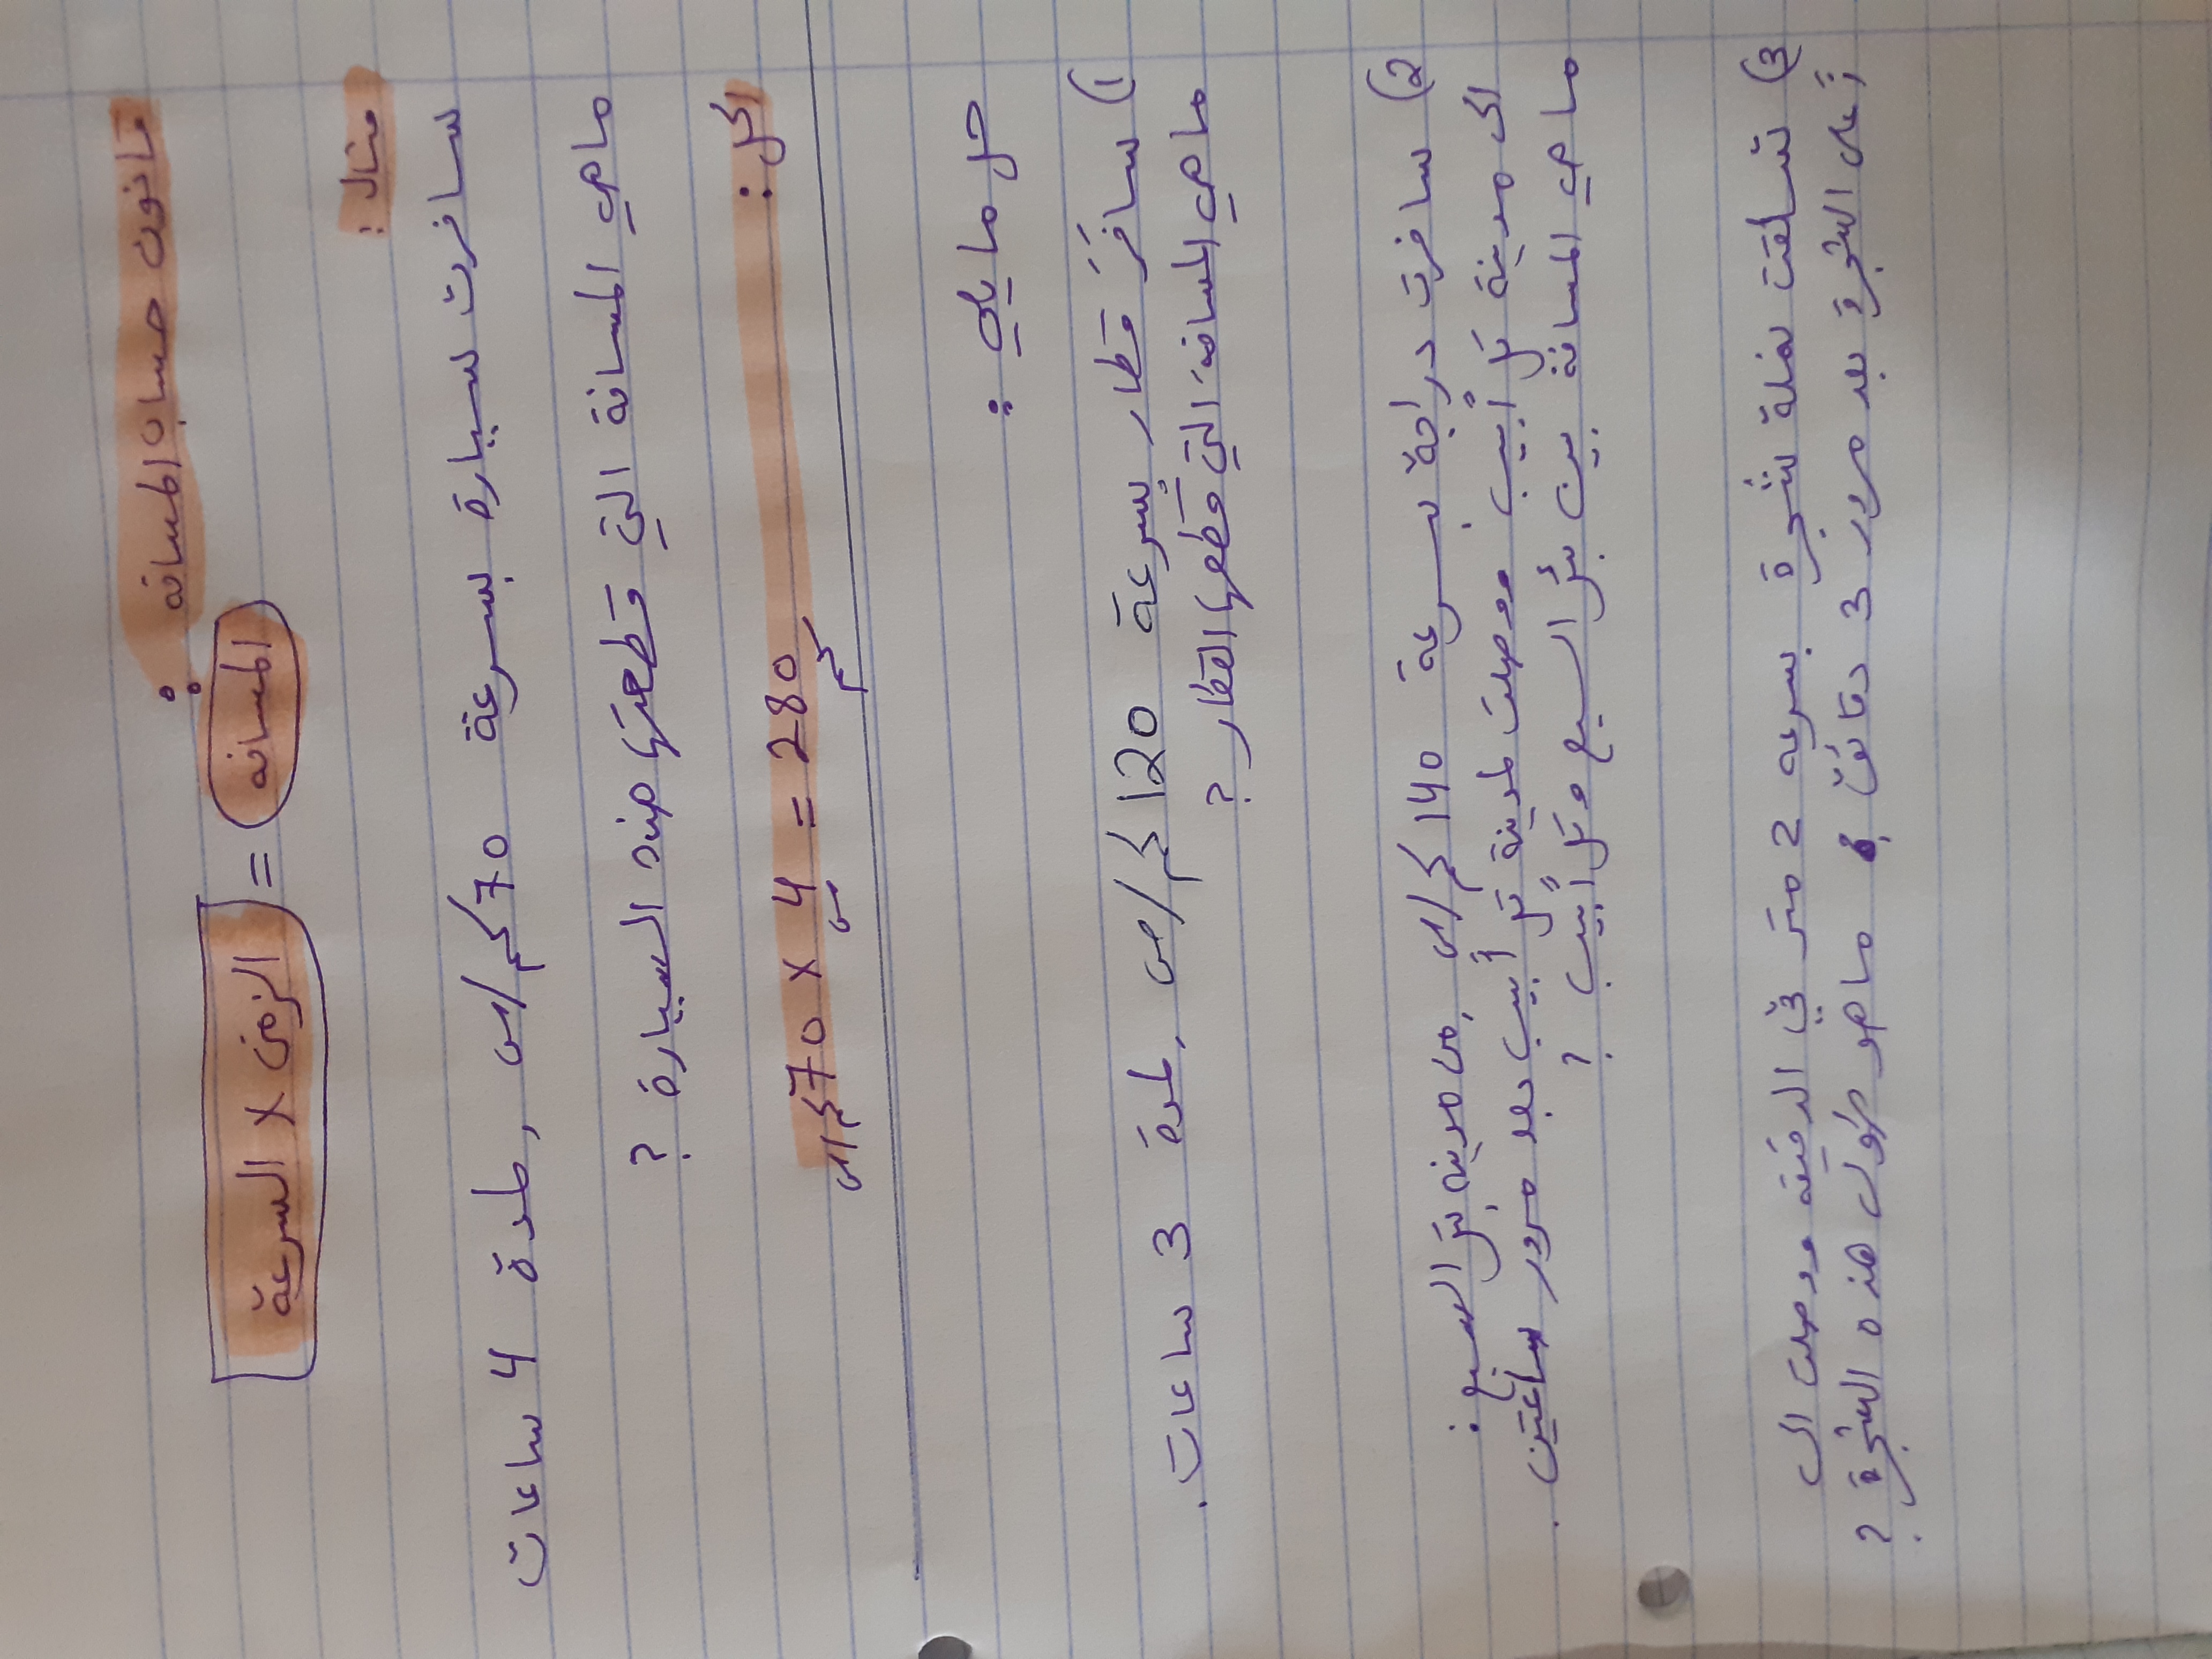 قانون حساب المسافه :
الزمن x السرعة = المسافه
مثال :
سافرت سيارة بسرعة 70 كم/س , لمدة 4 ساعات
ماهي المسافة التي قطعتها هذه السيارة ?
الحل :
70 x 4 = 280
كم/س س كم
حل ما يلي :
1) سافرَ قطار بسرعة 120 كم/س , لمدة 3 ساعات .
ماهي المسافة التي قطعها القطار ?
2) سافرت دراجة بسرعة 140 كم/س , من مدينة بئر السبع
الى مدينة تل أبيب . ووصلت لمدينة تل أبيب بعد مرور ساعتين .
ماهي المسافة بين بئر السبع وتل أبيب ?
3) تسلقت نملة شجرة بسرعه 2 متر في الدقيقه ووصلت الى
أعلى الشجرة بعد مرور 3 دقائق , ماهو طول هذه الشجرة ?